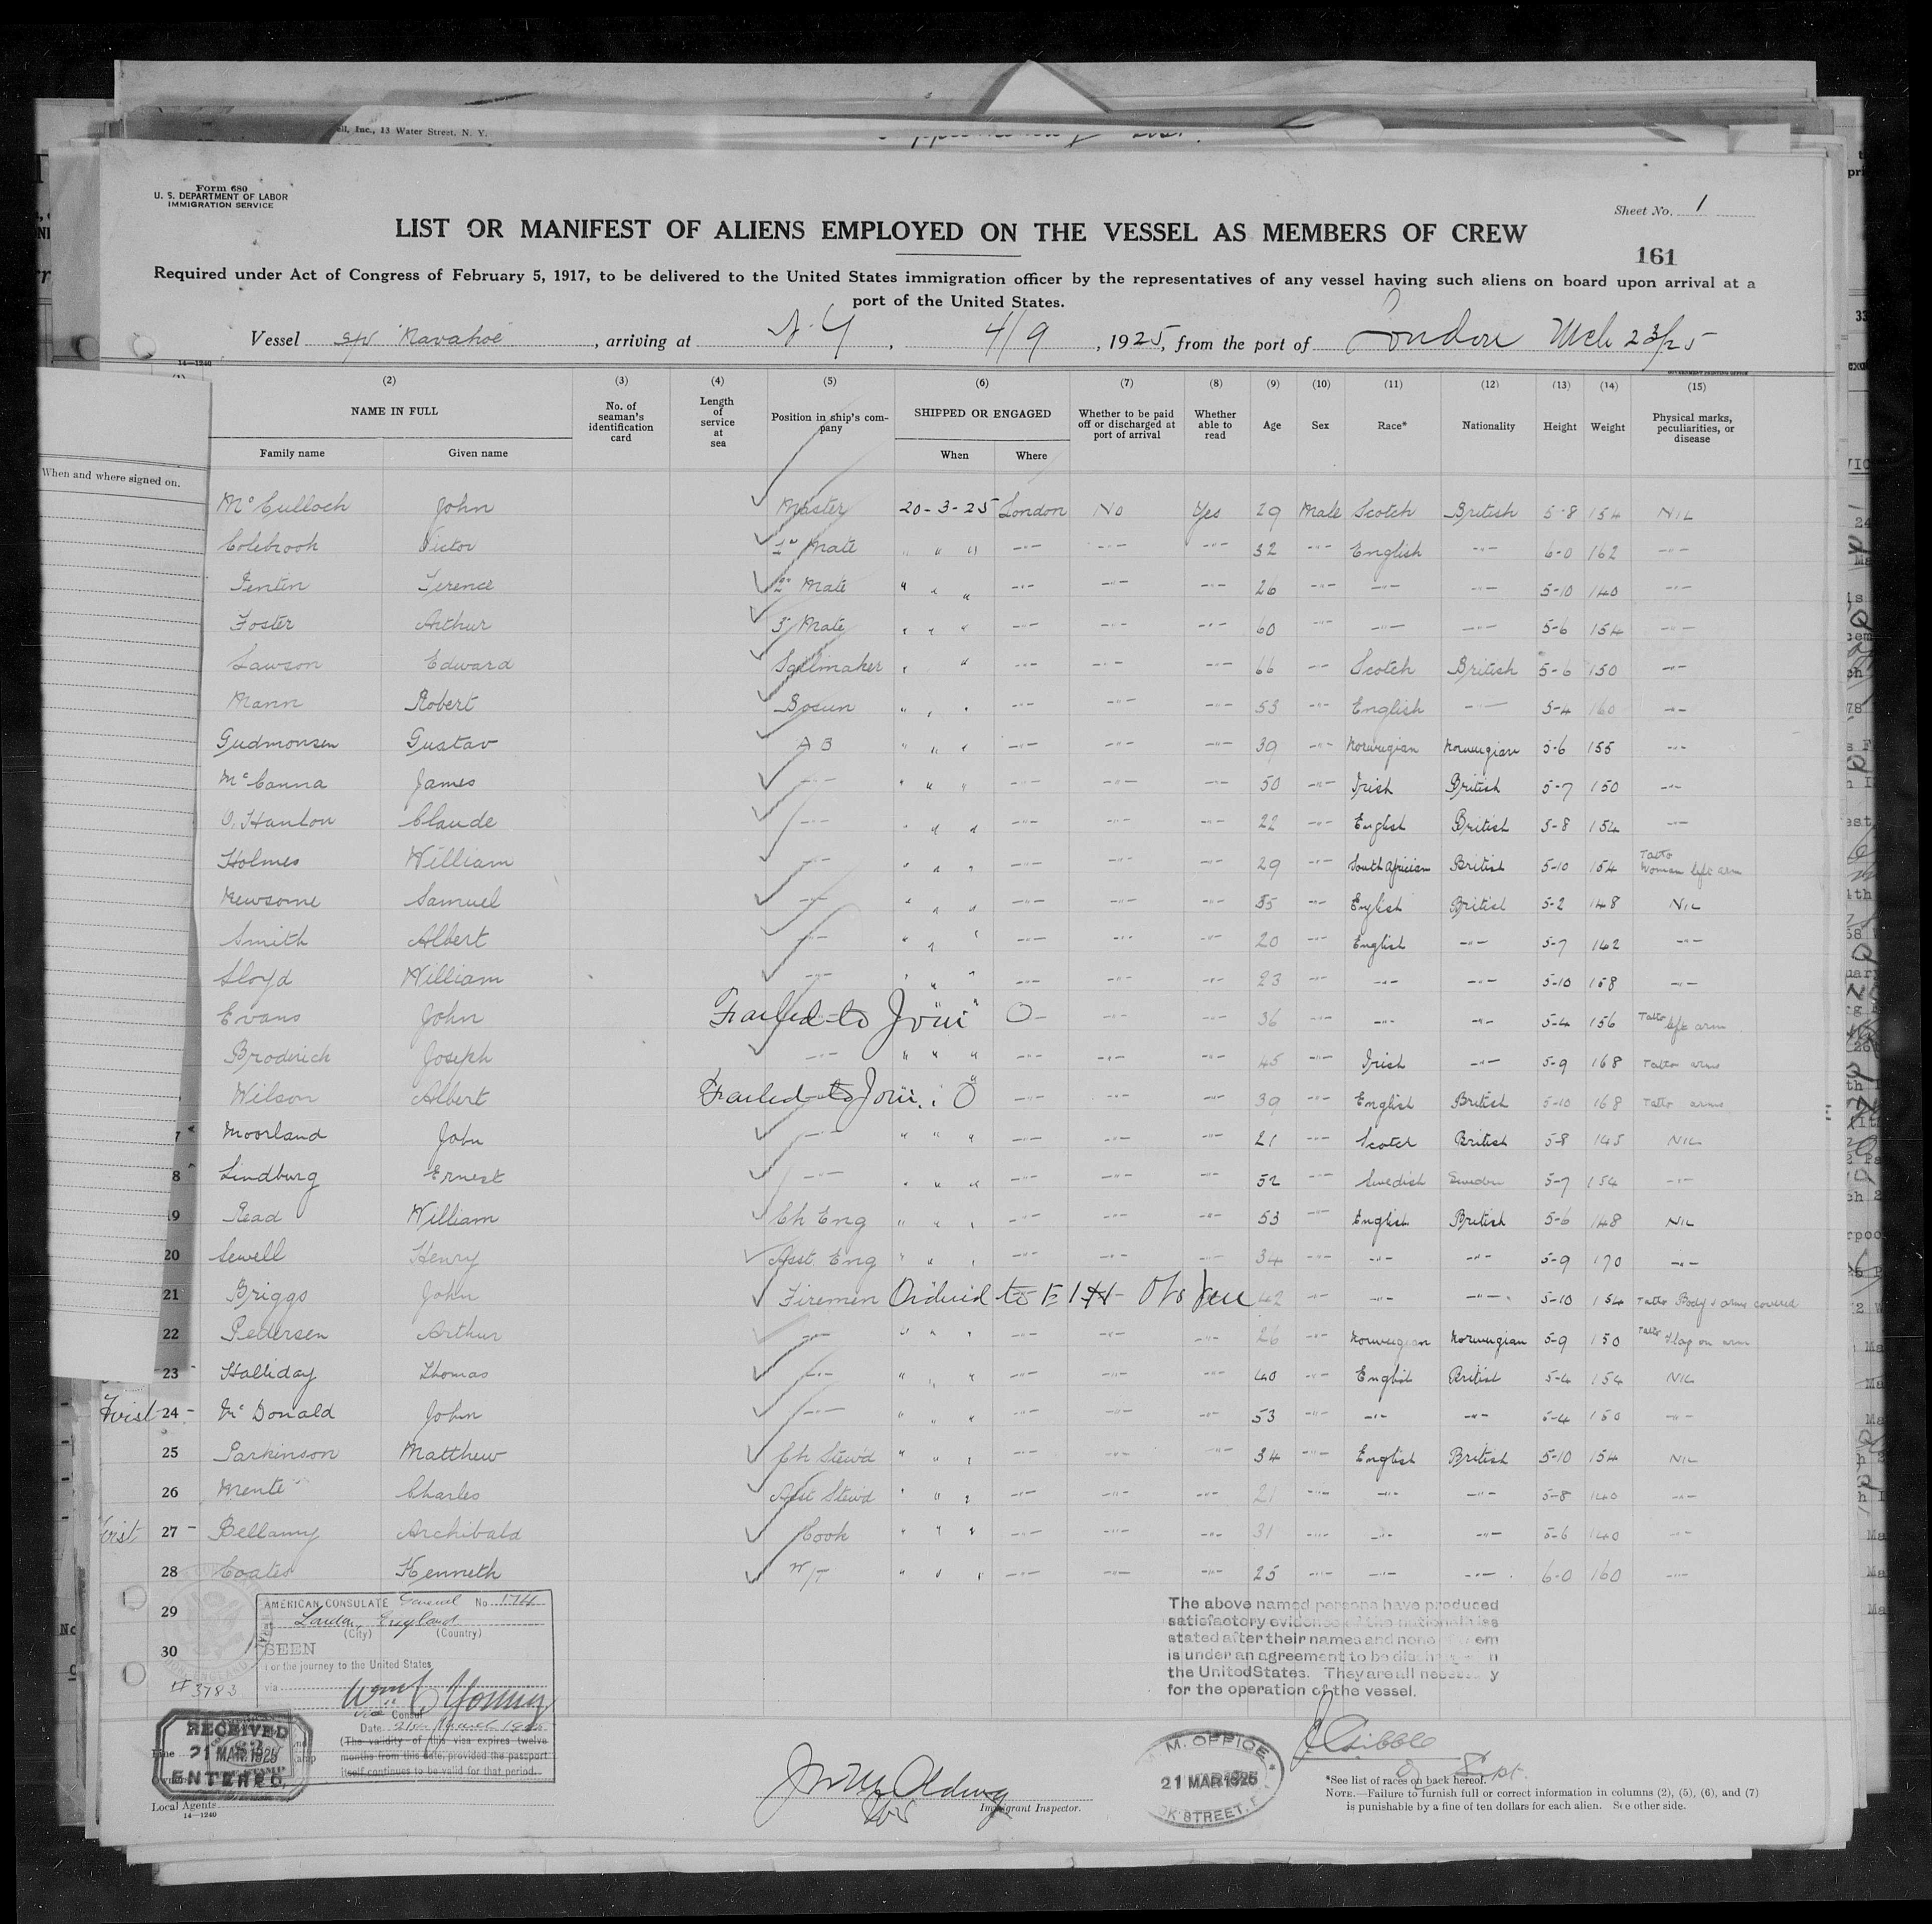 ell, Inc., 13 Water Street, N. Y.
Form 680
U. S. DEPARTMENT OF LABOR
IMMIGRATION SERVICE
Sheet No. 1
LIST OR MANIFEST OF ALIENS EMPLOYED ON THE VESSEL AS MEMBERS OF CREW
161
Required under Act of Congress of February 5, 1917, to be delivered to the United States immigration officer by the representatives of any vessel having such aliens on board upon arrival at a
port of the United States.
Vessel "Navahoe", arriving at N.Y, 4/9, 1925, from the port of London Mch 23/25
14-1240
(2) (3) (4) (5) (6) (7) (8) (9) (10) (11) (12) (13) (14) (15)
NAME IN FULL No. of seaman's identification card Length of service at sea Position in ship's company SHIPPED OR ENGAGED Whether to be paid off or discharged at port of arrival Whether able to read Age Sex Race* Nationality Height Weight Physical marks, peculiarities, or disease
Family name Given name When Where
When and where signed on.
McCulloch John Master 20-3-25 London No Yes 29 Male Scotch British 5-8 154 NIL
Colebrook Victor 1st Mate " " " -"- -"- -"- 32 -"- English -"- 6-0 162 -"-
Pentin Terence 2" Mate " " " -"- -"- -"- 26 -"- -"- -"- 5-10 140 -"-
Foster Arthur 3" Mate " " " -"- -"- -"- 60 -"- -"- -"- 5-6 154 -"-
Lawson Edward Sailmaker " " -"- -"- -"- 66 -"- Scotch British 5-6 150 -"-
Mann Robert Bosun " " " -"- -"- -"- 53 -"- English -"- 5-4 160 -"-
Gudmonsen Gustav AB " " " -"- -"- -"- 39 -"- Norwegian Norwegian 5-6 155 -"-
McCanna James -"- " " " -"- -"- -"- 50 -"- Irish British 5-7 150 -"-
O'Hanlon Claude -"- " " " -"- -"- -"- 22 -"- English British 5-8 154 -"-
Holmes William -"- " " " -"- -"- -"- 29 -"- South African British 5-10 154 Tatto Woman left arm
Newsome Samuel -"- " " " -"- -"- -"- 35 -"- English British 5-2 148 NIL
Smith Albert -"- " " " -"- -"- -"- 20 -"- English -"- 5-7 142 -"-
Lloyd William -"- " " " -"- -"- -"- 23 -"- -"- -"- 5-10 158 -"-
Evans John Failed to Join -"- -"- 36 -"- -"- -"- 5-4 156 Tatto left arm
Broderick Joseph -"- " " " -"- -"- -"- 45 -"- Irish -"- 5-9 168 Tatto arms
Wilson Albert Failed to Join -"- -"- -"- 39 -"- English British 5-10 168 Tatto arms
7 Moorland John -"- " " " -"- -"- -"- 21 -"- Scotch British 5-8 145 NIL
8 Lindburg Ernest -"- " " " -"- -"- -"- 52 -"- Swedish Sweden 5-7 154 -"-
19 Read William Ch Eng " " " -"- -"- -"- 53 -"- English British 5-6 148 NIL
20 Sewell Henry Asst. Eng " " " -"- -"- -"- 34 -"- -"- -"- 5-9 170 -"-
21 Briggs John Firemen 42 -"- -"- -"- 5-10 154 Tatto Body & arms covered
22 Pedersen Arthur -"- " " " -"- -"- -"- 26 -"- Norwegian Norwegian 5-9 150 Tatto Flag on arm
23 Halliday Thomas -"- " " " -"- -"- -"- 40 -"- English British 5-4 154 NIL
First 24 - McDonald John -"- " " " -"- -"- -"- 53 -"- -"- -"- 5-4 150 -"-
25 Parkinson Matthew Ch Stewd " " " -"- -"- -"- 34 -"- English British 5-10 154 NIL
26 Mente Charles Asst Stewd " " " -"- -"- -"- 21 -"- -"- -"- 5-8 140 -"-
First 27 - Bellamy Archibald Cook " " " -"- -"- -"- 31 -"- -"- -"- 5-6 140 -"-
28 Coates Kenneth W/T " " " -"- -"- -"- 25 -"- -"- -"- 6-0 160 -"-
29
30
AMERICAN CONSULATE General No
London England
(City) (Country)
SEEN
For the journey to the United States
via
Vice Consul
Date 21st March 1925
(The validity of this visa expires twelve
months from this date, provided the passport
itself continues to be valid for that period.
# 3783
RECEIVED
21 MAR. 1925
ENTERED
The above named persons have produced
satisfactory evidence of the nationalities
stated after their names and none of them
is under an agreement to be discharged in
the United States. They are all necessary
for the operation of the vessel.
M. M. OFFICE
21 MAR 1925
STREET, E.
Immigrant Inspector.
Local Agents
14-1240
*See list of races on back hereof.
NOTE.—Failure to furnish full or correct information in columns (2), (5), (6), and (7)
is punishable by a fine of ten dollars for each alien. See other side.